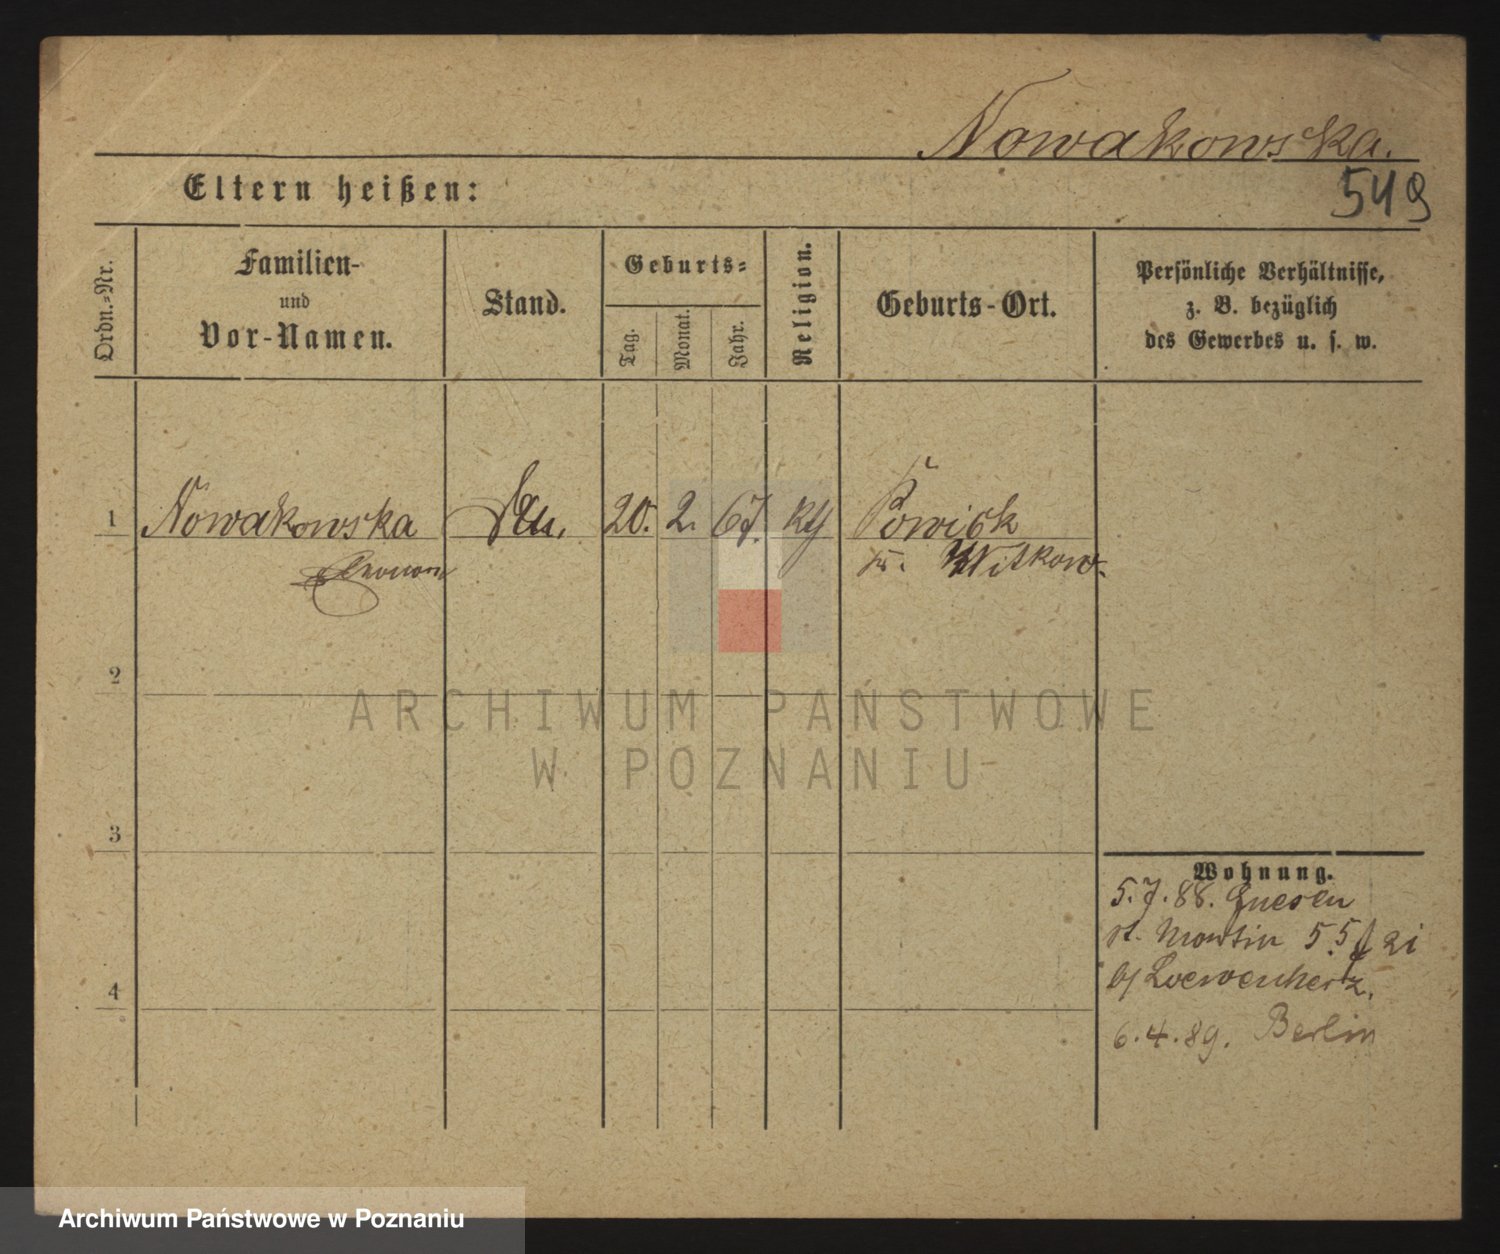 Nowakowska.
549
Eltern heißen:
Ordn.-Nr.
Familien-
und
Vor-Namen.
Stand.
Geburts-
Tag.
Monat.
Jahr.
Religion.
Geburts-Ort.
Persönliche Verhältnisse,
z. B. bezüglich
des Gewerbes u. s. w.
1 Nowakowska 20. 2. 67. kth Powidz
Kr. Witkowo.
2
3
4
ARCHIWUM PAŃSTWOWE
W POZNANIU
Wohnung.
5.7.88. Gnesen
st. Martin 55
b/ Loewenherz.
6.4.89. Berlin
Archiwum Państwowe w Poznaniu